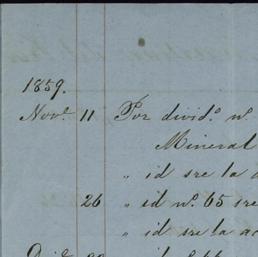 1859.
Novᵉ 11 Por dividº nº
Mineral
„ id sre la a
26 „ id nº 65 sre
„ id sre la ac